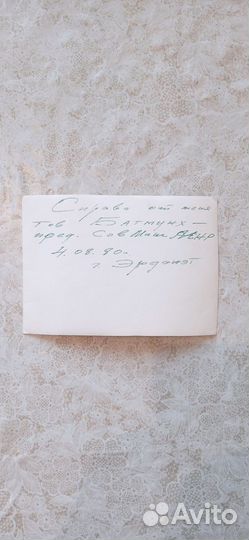 Справа от меня
тов Батмунх –
пред. Сов Мин МНР
4.08.80г.
г. Эрдэнэт
Avito